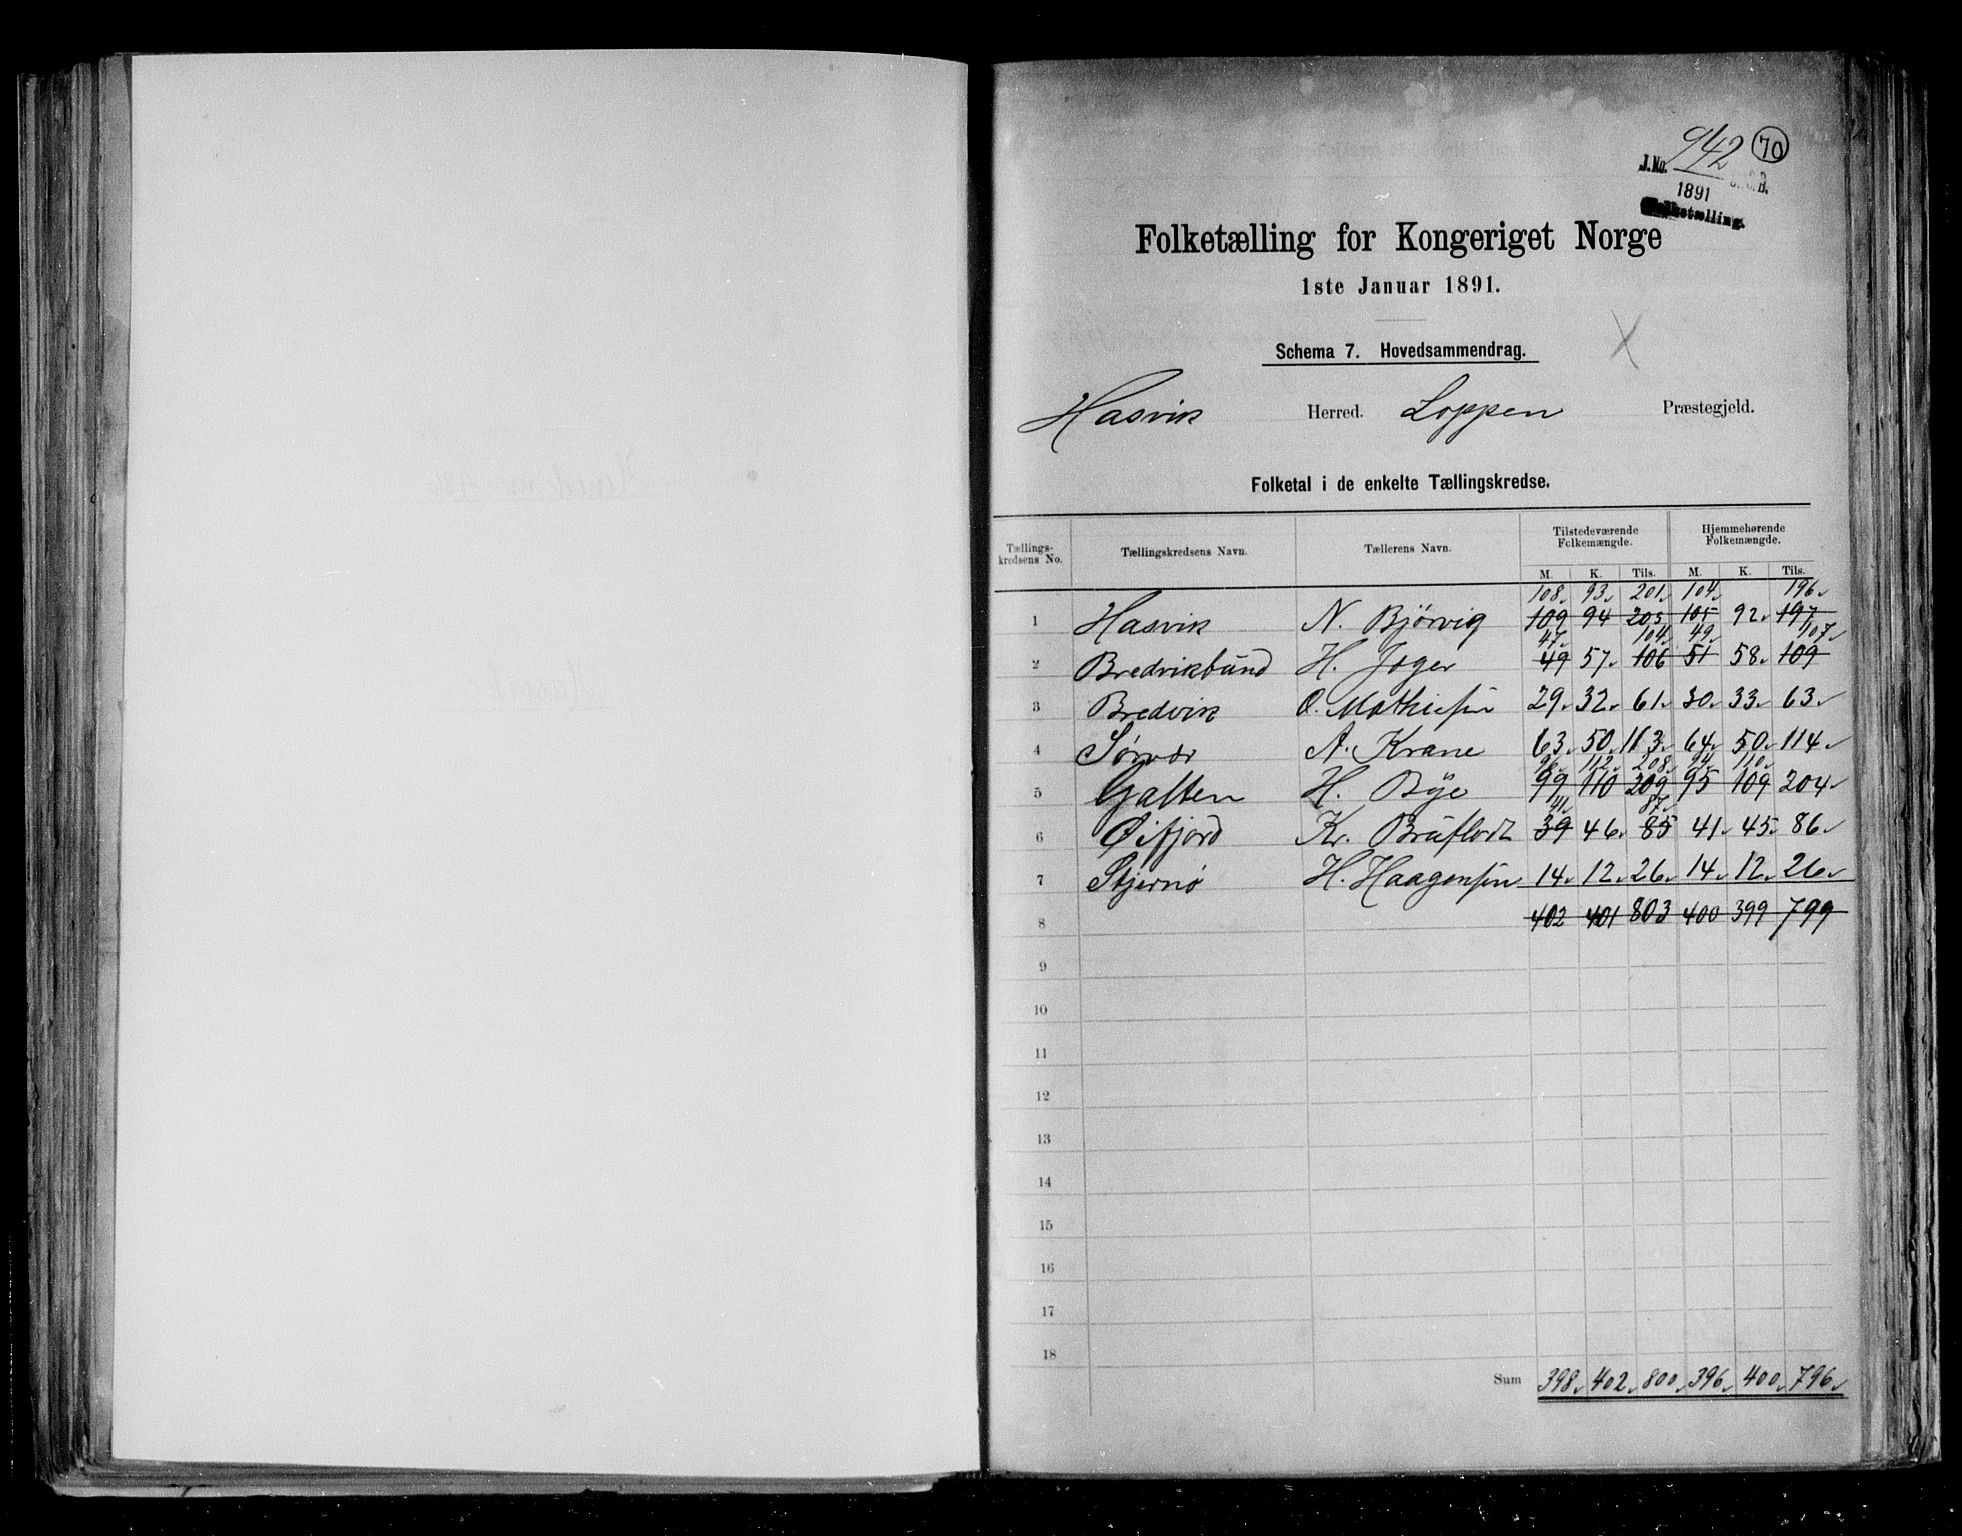 942 70
J.No.
1891
Folketælling.
Folketælling for Kongeriget Norge
1ste Januar 1891.
Schema 7. Hovedsammendrag.
Hasvik Herred. Loppen Præstegjeld.
Folketal i de enkelte Tællingskredse.
Tællingskredsens No. Tællingskredsens Navn. Tællerens Navn. Tilstedeværende Folkemængde. Hjemmehørende Folkemængde.
M. K. Tils. M. K. Tils.
108 93 201 104 196
1 Hasvik N. Bjørvig 109 94 203 105 92 197
47 104 49 107
2 Bredvikbünd H. Jager 49 57 106 51 58 109
3 Bredvik O. Mathiesen 29 32 61 30 33 63
4 Sørvær A. Krane 63 50 113 64 50 114
96 112 208 94 110
5 Galten H. Bÿe 99 110 209 95 109 204
41 87
6 Øifjord Kr. Brüflodt 39 46 85 41 45 86
7 Stjernø H. Haagensen 14 12 26 14 12 26
8 402 401 803 400 399 799
9
10
11
12
13
14
15
16
17
18
Sum 398 402 800 396 400 796